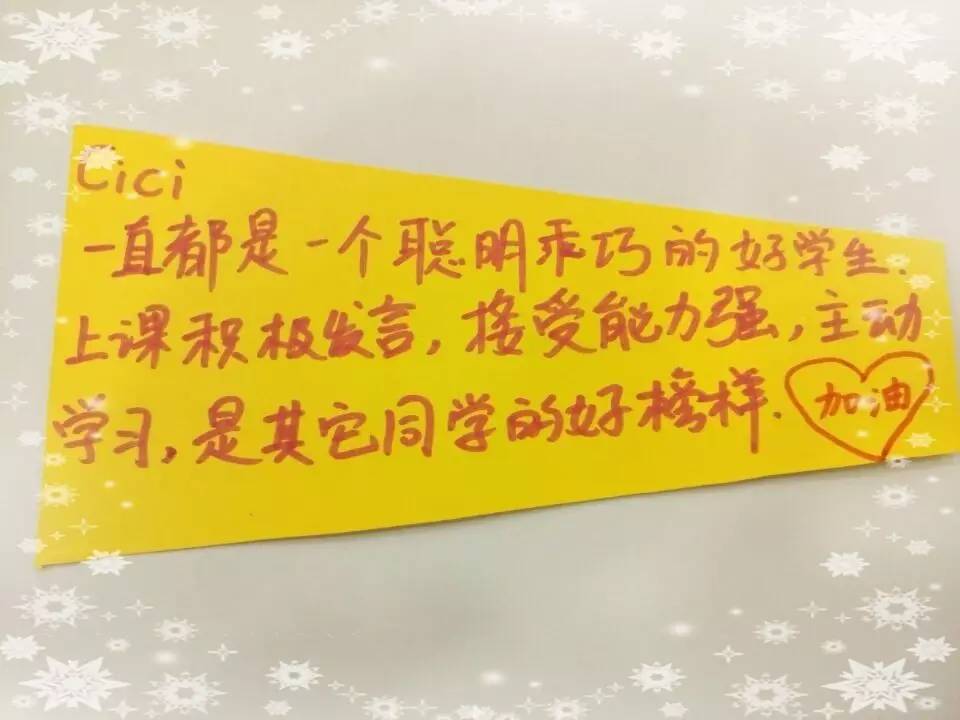 Cici
一直都是一个聪明乖巧的好学生.
上课积极发言,接受能力强,主动
学习,是其它同学的好榜样.
加油